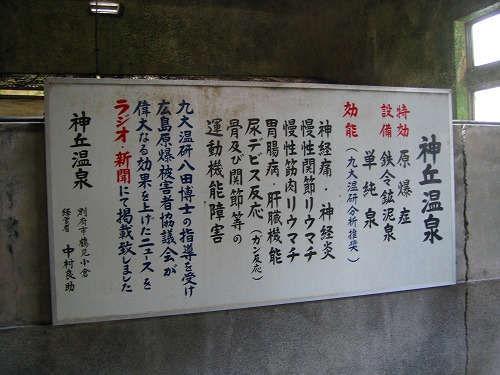 神丘温泉
特効 原爆症
設備 鉄令鉱泥泉
単純泉
効能 (九大温研分析推奨)
神経痛・神経炎
慢性関節リウマチ
慢性筋肉リウマチ
胃腸病・肝臓機能
尿デビス反応(ガン反応)
骨及び関節等の
運動機能障害
九大温研八田博士の指導を受け
広島原爆被害者協議会が
偉大なる効果を上げたニュースを
ラジオ・新聞にて掲載致しました
神丘温泉
別府市鶴見小倉
経営者 中村良助